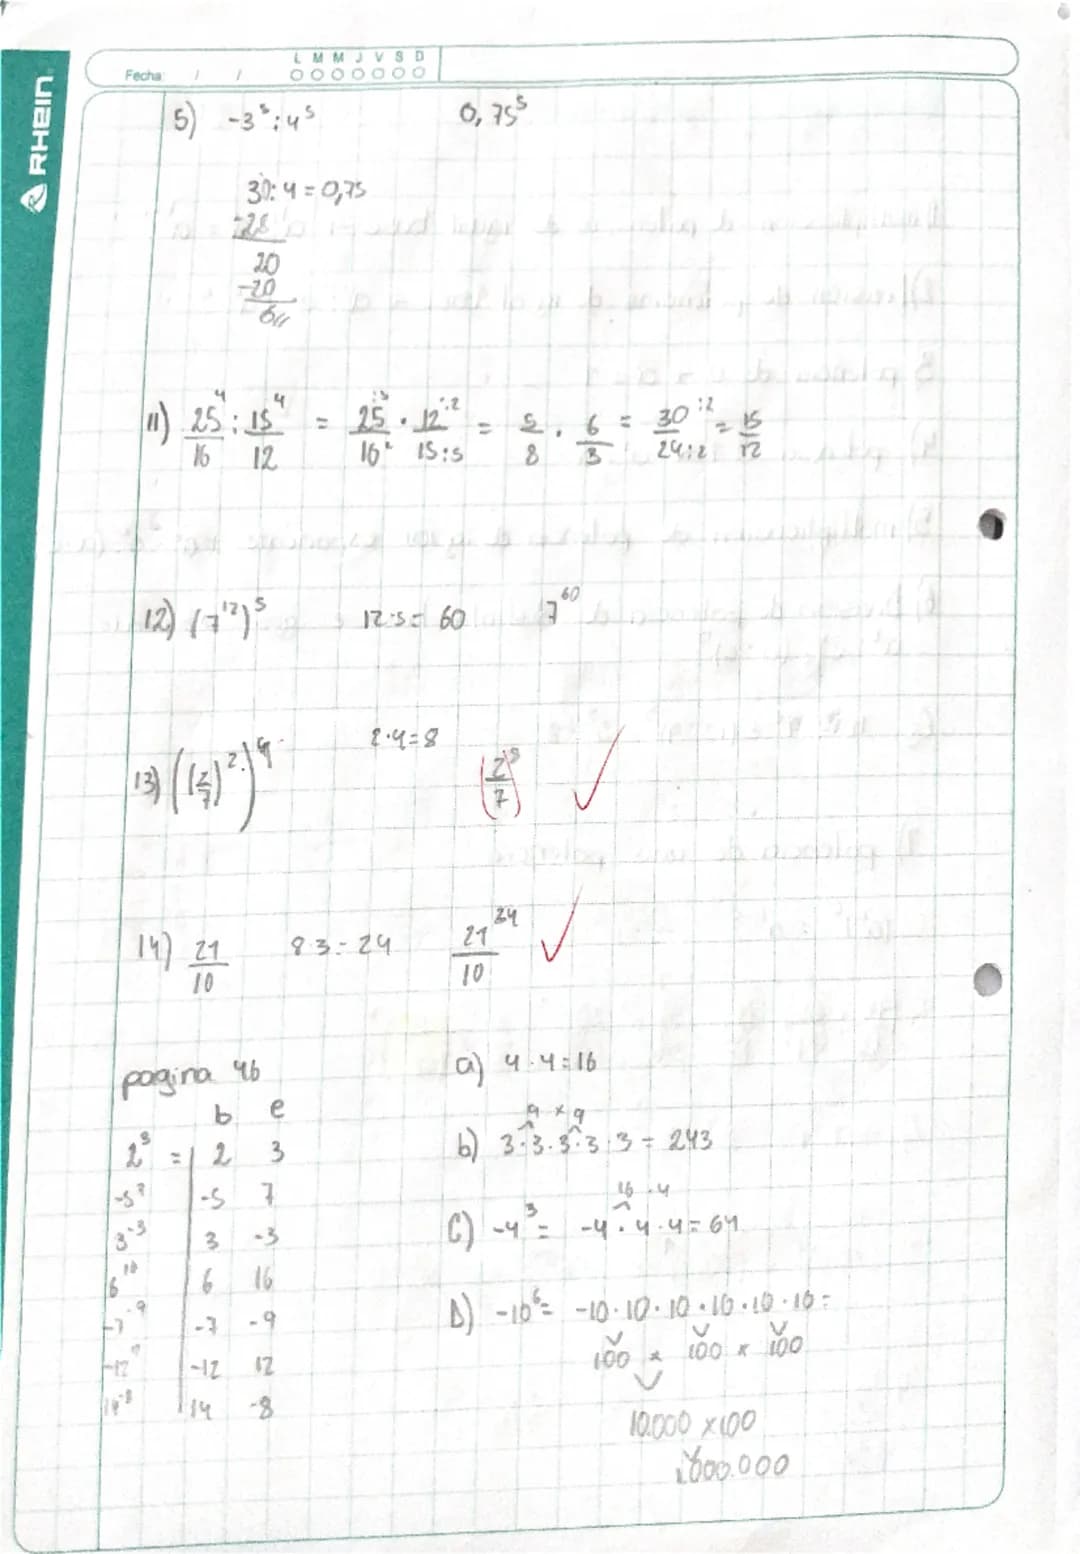 RHEIN
L M M J V S D
Fecha: / /
5) -3⁵:4⁵ 0,75⁵
30:4=0,75
-28
20
-20
0//
11) 25⁴/16 : 15⁴/12 = 25:5/16² · 12:2/15:5 = 5/8 · 6/3 = 30:2/24:2 = 15/12
12) (7¹²)⁵ 12·5= 60 7⁶⁰
13) ((2/7)².)⁴ 2·4=8 (2/7)⁸ ✓
14) 21/10 8 3=24 21²⁴/10 ✓
pagina 46
b e
2³ = 2 3
-5⁷ -5 7
3⁻³ 3 -3
6¹⁰ 6 16
-7⁻⁹ -7 -9
-12 -12 12
14⁻⁸ 14 -8
a) 4·4=16
9 x 9
b) 3·3·3·3·3= 243
16·4
C) -4³= -4·4·4=64
D) -10⁶= -10·10·10·10·10·10=
100 x 100 x 100
10.000 x100
1.000.000